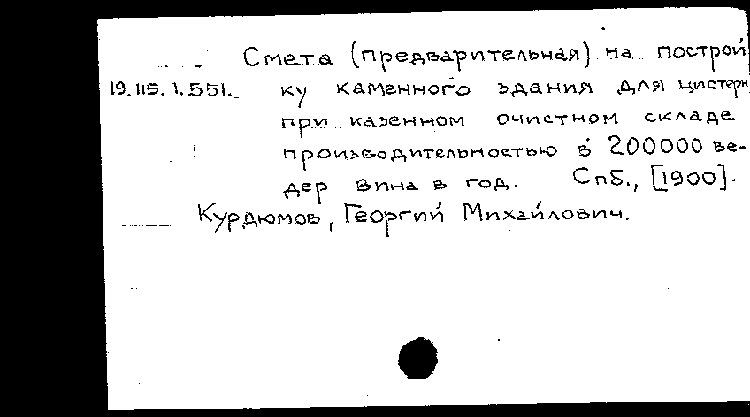 Смета (предварительная) на построй
19.115.1.551. ку каменного здания для цистерн
при казенном очистном складе
производительностью в 200000 ве-
дер вина в год. Спб., [1900].
Курдюмов, Георгий Михайлович.